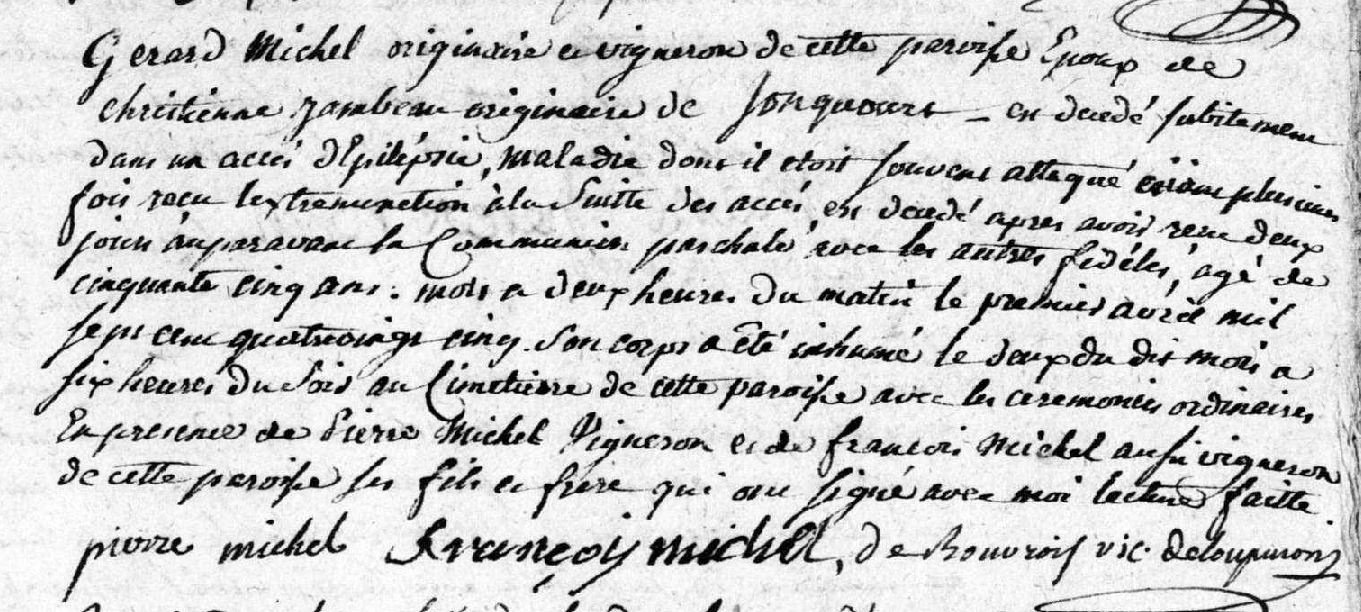 Gerard Michel originaire et vigneron de cette paroisse Epoux de
christienne jambeau originaire de Jonquourt - est decedé subitement
dans un accés d'Epilépsie, maladie dont il etoit souvent attaqué aiant plusieurs
fois recu lextremunction à la suitte des accés, est decedé apres avoir recu deux
jours auparavant la Communion paschale avec les autres fidéles, agé de
cinquante cinq ans. mort a deux heures du matin le premier avril mil
sept cent quatrevingt cinq. Son corps a été inhumé le deux du dit mois a
six heures du soir au Cimetierre de cette paroisse avec les ceremonies ordinaires
En presence de Pierre Michel Vigneron et de francois Michel aussi vigneron
de cette paroisse ses fils et frere qui ont signé avec moi lecture faitte.
pierre michel françois michel, de Rouvrois vic.